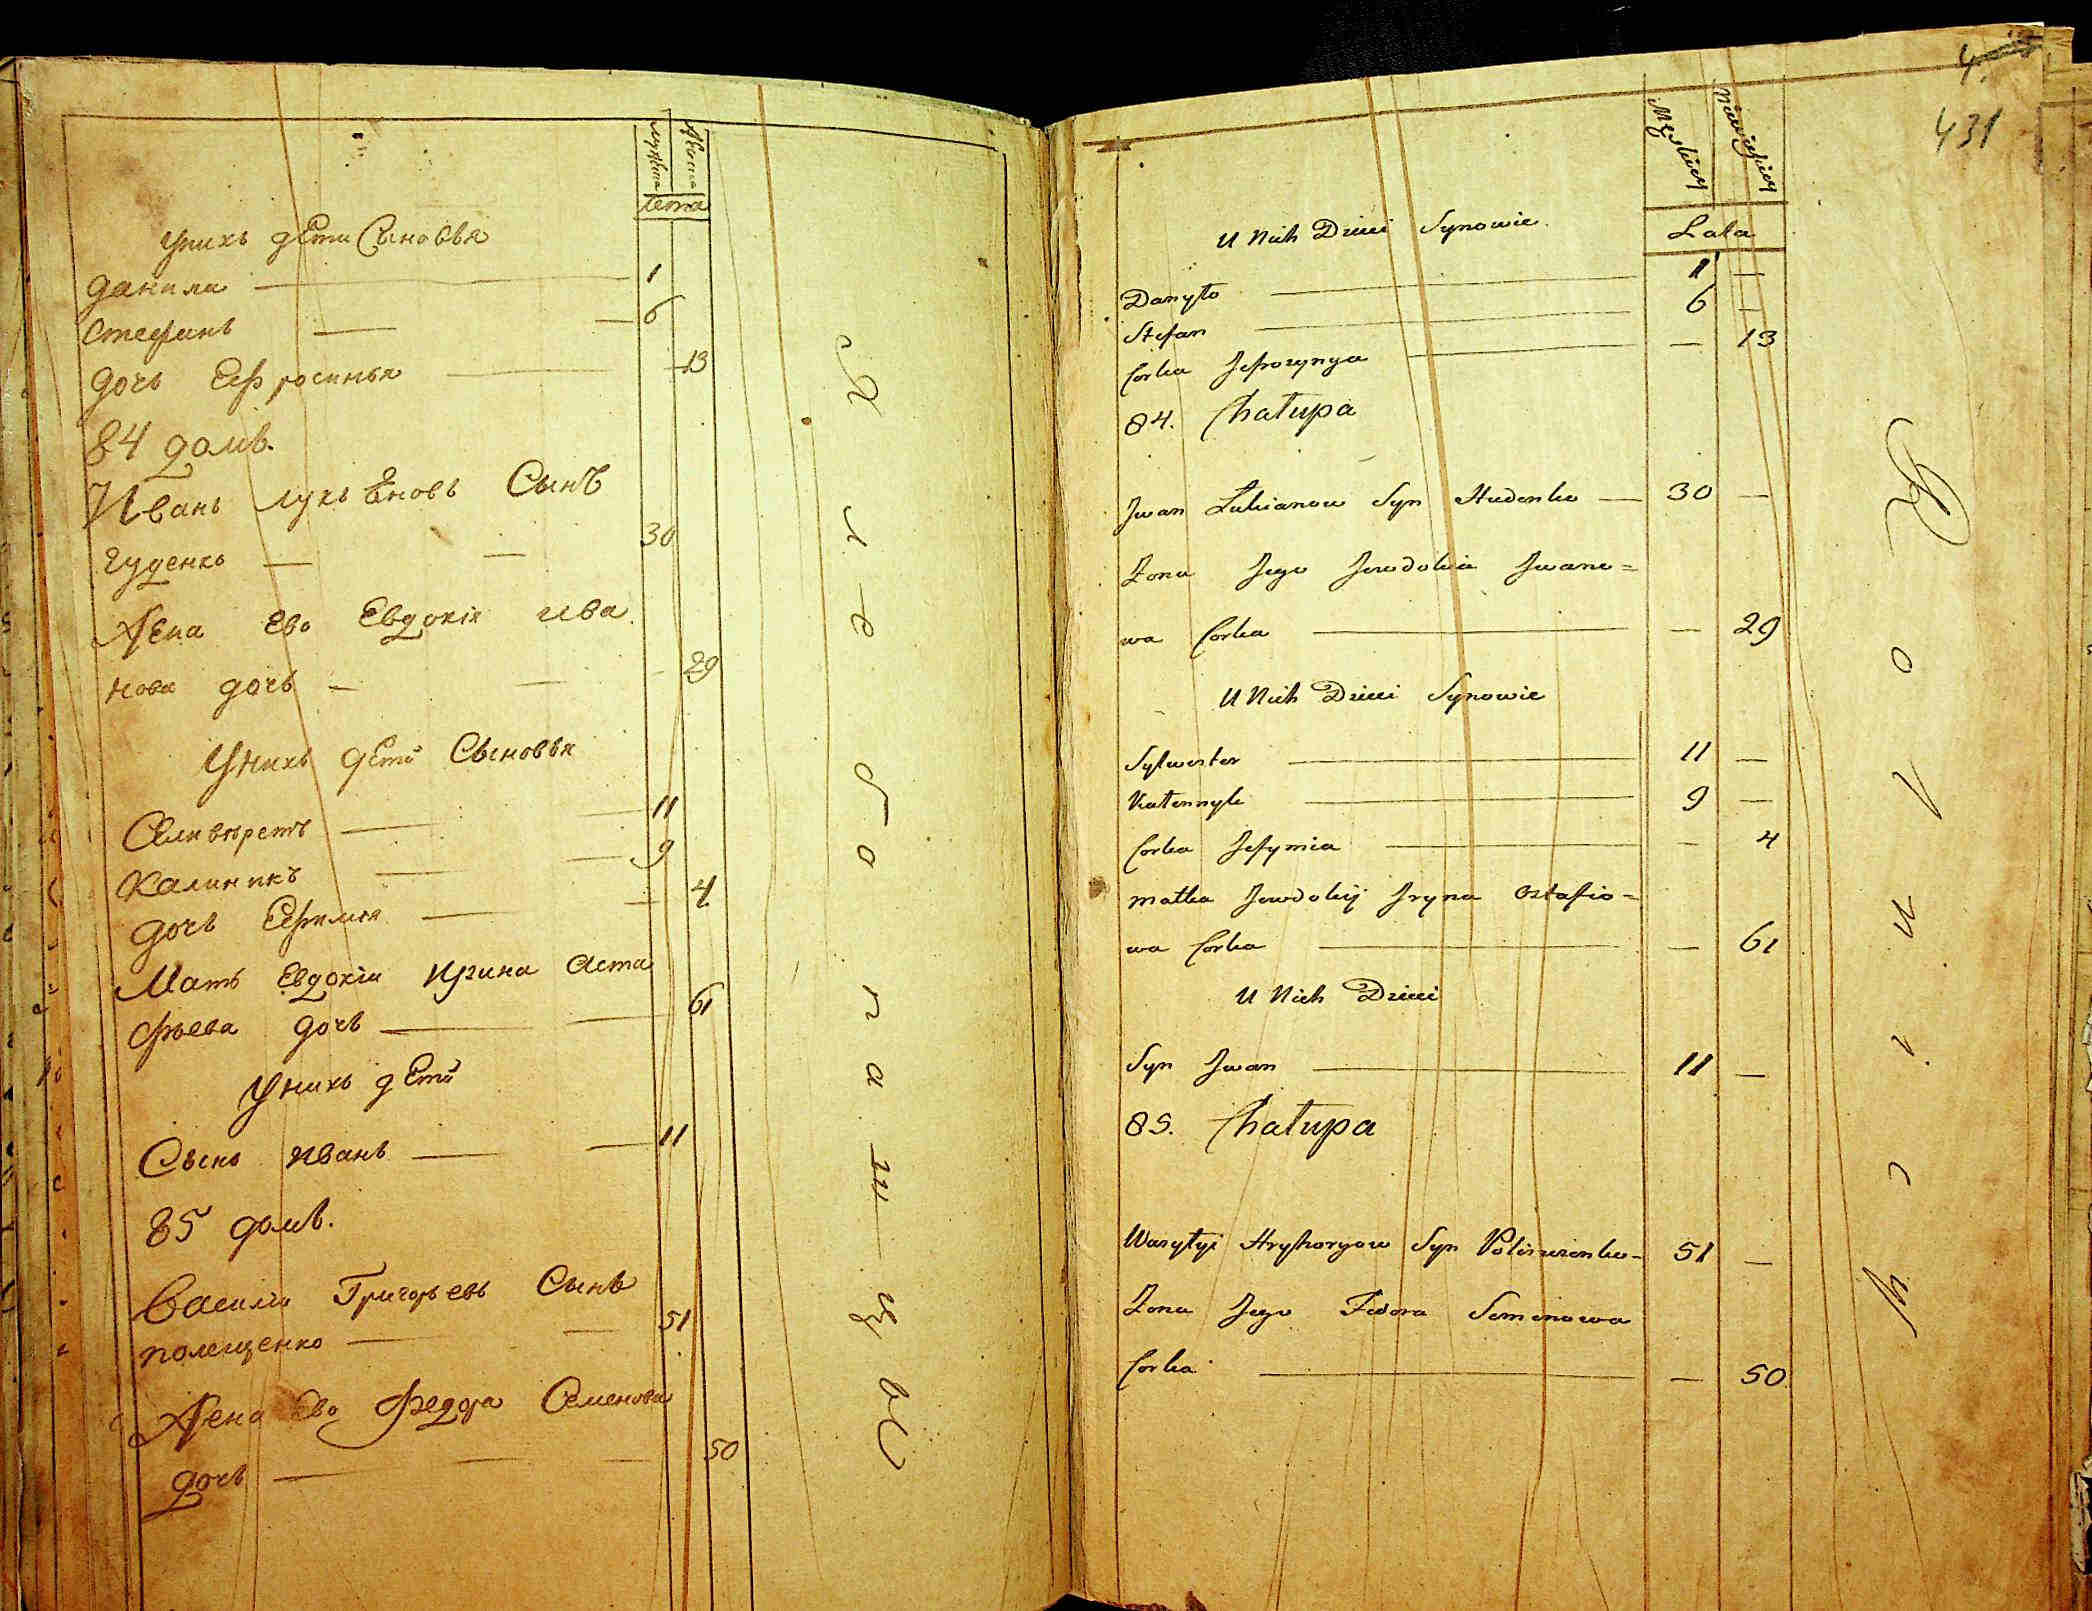 мужеска
женска
лета
У нихъ дѣти Сыновья
Данила 1
Стефанъ 6
дочь Ефросинья 13
84 домъ.
Иванъ Лукьѣновъ Сынъ
гуденко 30
Жена Ево Евдокія ива
нова дочь 29
У нихъ дѣти Сыновья
Селивѣретъ 11
Калиникъ 9
дочь Ефимия 4
Мать Евдокіи Ирина Аста
фьева дочь 61
У нихъ дѣти
Сынъ иванъ 11
85 домъ.
Василій Григорьевъ Сынъ
полещенко 51
Жена Ево Федора Семенова
дочь 50
Хлебопашцы
4
431
Męskiey
Niewieskiey
Lata
U Nich Dzieci Synowie
Danyło 1 —
Stefan 6 —
Corka Jefrozynya — 13
84. Chałupa
Jwan Łukianow Syn Hudenko — 30 —
Zona Jego Jewdokia Jwano=
wa Corka — 29
U Nich Dzieci Synowie
Sylwester 11 —
Kałennyk 9 —
Corka Jefymia — 4
matka Jewdokij Jryna Ostafio=
wa Corka — 61
U Nich Dzieci
Syn Jwan 11 —
85. Chałupa
Wasylyi Hryhoryow Syn Poliszczenko — 51 —
Zona Jego Fedora Semenowa
Corka — 50
Rolnicy